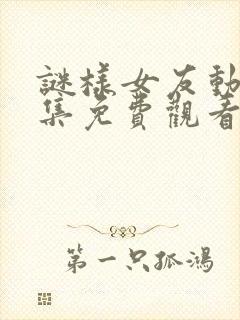 謎樣女友動
集免費觀看
第一只孤鴻